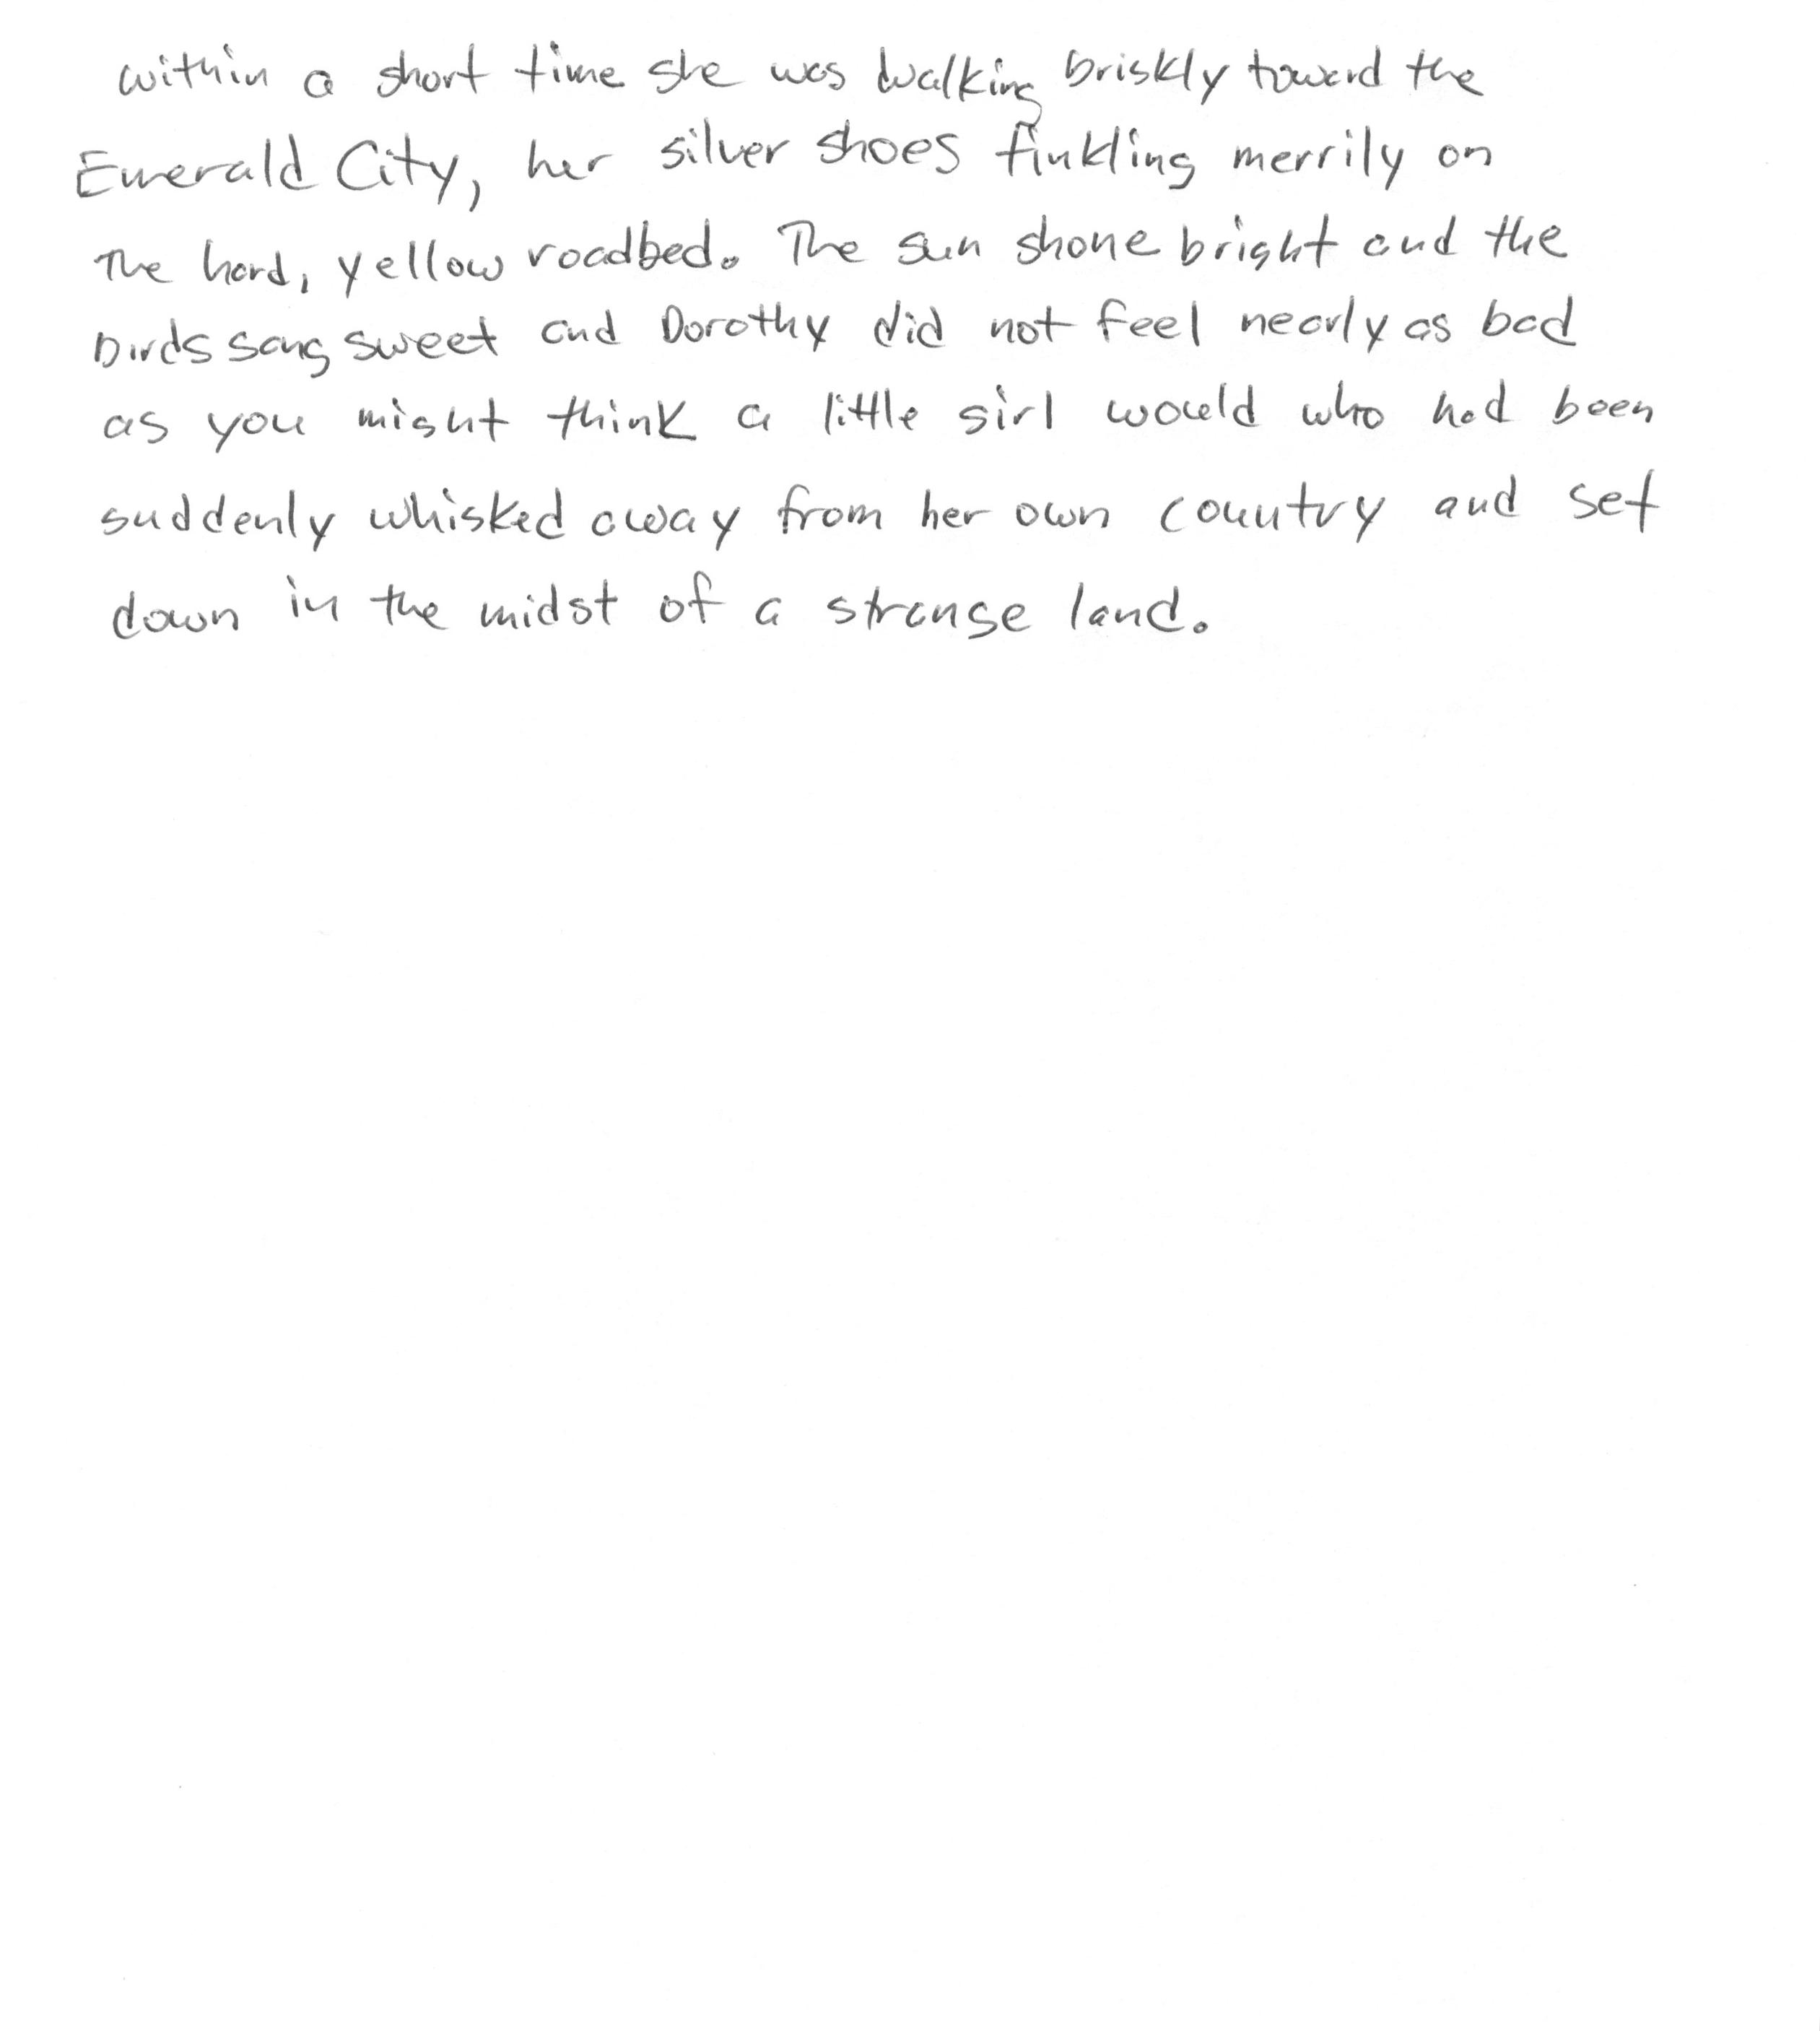 within a short time she was walking briskly toward the
Emerald City, her silver shoes tinkling merrily on
the hard, yellow roadbed. The sun shone bright and the
birds sang sweet and Dorothy did not feel nearly as bad
as you might think a little girl would who had been
suddenly whisked away from her own country and set
down in the midst of a strange land.